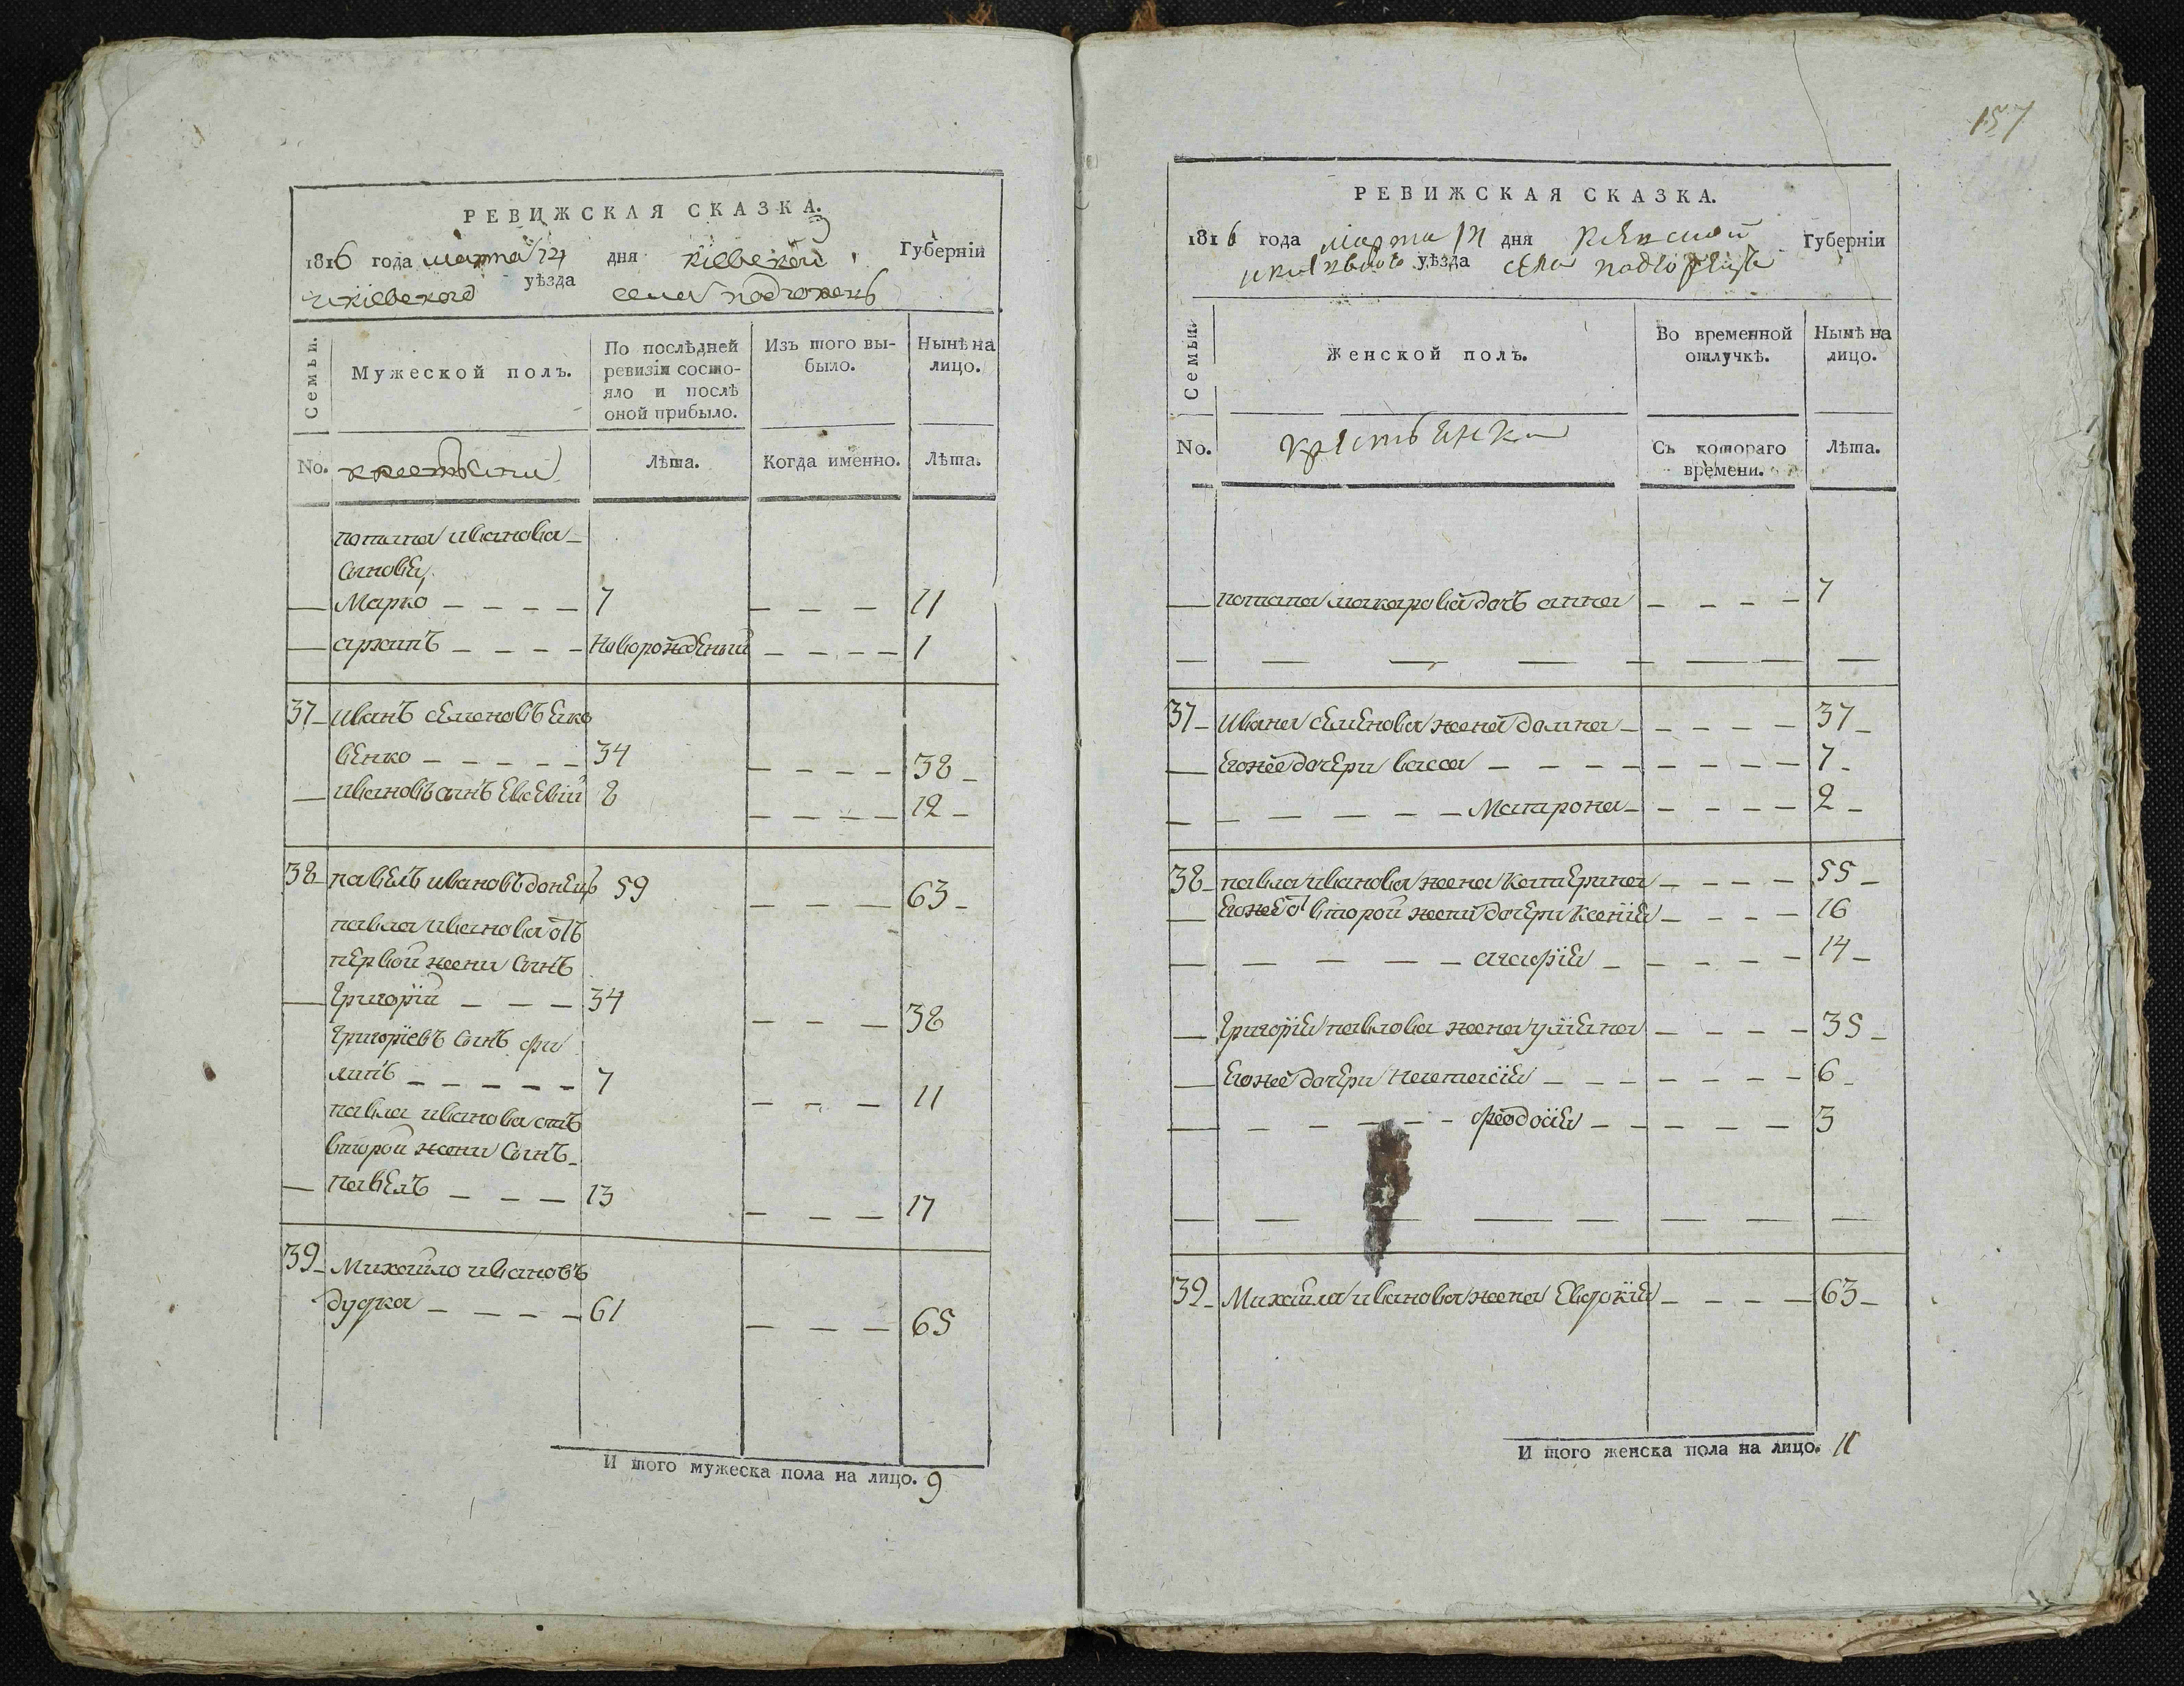 РЕВИЖСКАЯ СКАЗКА.
1816 года марта 14 дня Кіевской Губерніи
и кіевскаго уѣзда села подгорецъ
Семьи.
Мужеской полъ.
По послѣдней
ревизіи состо-
яло и послѣ
оной прибыло.
Изъ того вы-
было.
Нынѣ на
лицо.
No. крестьяни
Лѣта.
Когда именно.
Лѣта.
потапа иванова
сыновья
— Марко — — — — 7 — — — 11
— архипъ — — — — Новорожденный — — — — 1
37 — иванъ семеновъ
венко — — — — — 34 — — — — 38 —
— ивановъ сынъ Евсевій 8 — — — — 12 —
38 — павелъ ивановъ донецъ 59 — — — 63 —
павла иванова отъ
первой жени сынъ
— григорій — — — 34 — — — 38
григоріевъ сынъ фи
липъ — — — — — 7 — — — 11
павла иванова отъ
второй жени сынъ —
— павелъ — — — 13 — — — 17
39 — Михайло ивановъ
дудка — — — — 61 — — — 65
И того мужеска пола на лицо. 9
157
РЕВИЖСКАЯ СКАЗКА.
1816 года марта 14 дня Кіевской Губерніи
и кіевского уѣзда села подгорецъ
Семьи.
Женской полъ.
Во временной
отлучкѣ.
Нынѣ на
лицо.
No. крестьянки
Съ котораго
времени.
Лѣта.
— потапа макарова дочъ анна — — — — 7
— — — — — — — —
37 — Ивана семенова жена домна — — — — — 37 —
— Егожъ дочери васса — — — — — — — — 7 —
— — — — — — — Матрона — — — — — 2 —
38 — павла иванова жена катерина — — — — 55 —
— Егожъ отъ второй жени дочери ксенія — — — — 16
— — — — — агафія — — — — — 14 —
— григорія павлова жена уліяна — — — — 35 —
— Егожъ дочери Настасія — — — — — — — 6 —
— — — — — — феодосія — — — — — 3
— — — — — — — — —
39 — Михайла иванова жена Евдокія — — — — 63 —
И того женска пола на лицо. 11